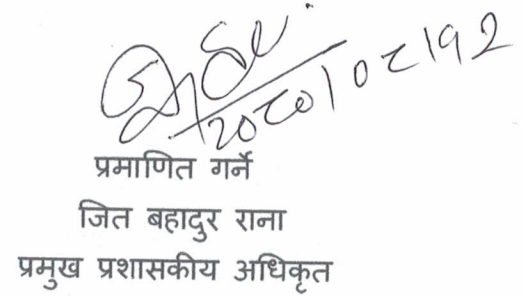 २०८०/०८/१२
प्रमाणित गर्ने
जित बहादुर राना
प्रमुख प्रशासकीय अधिकृत